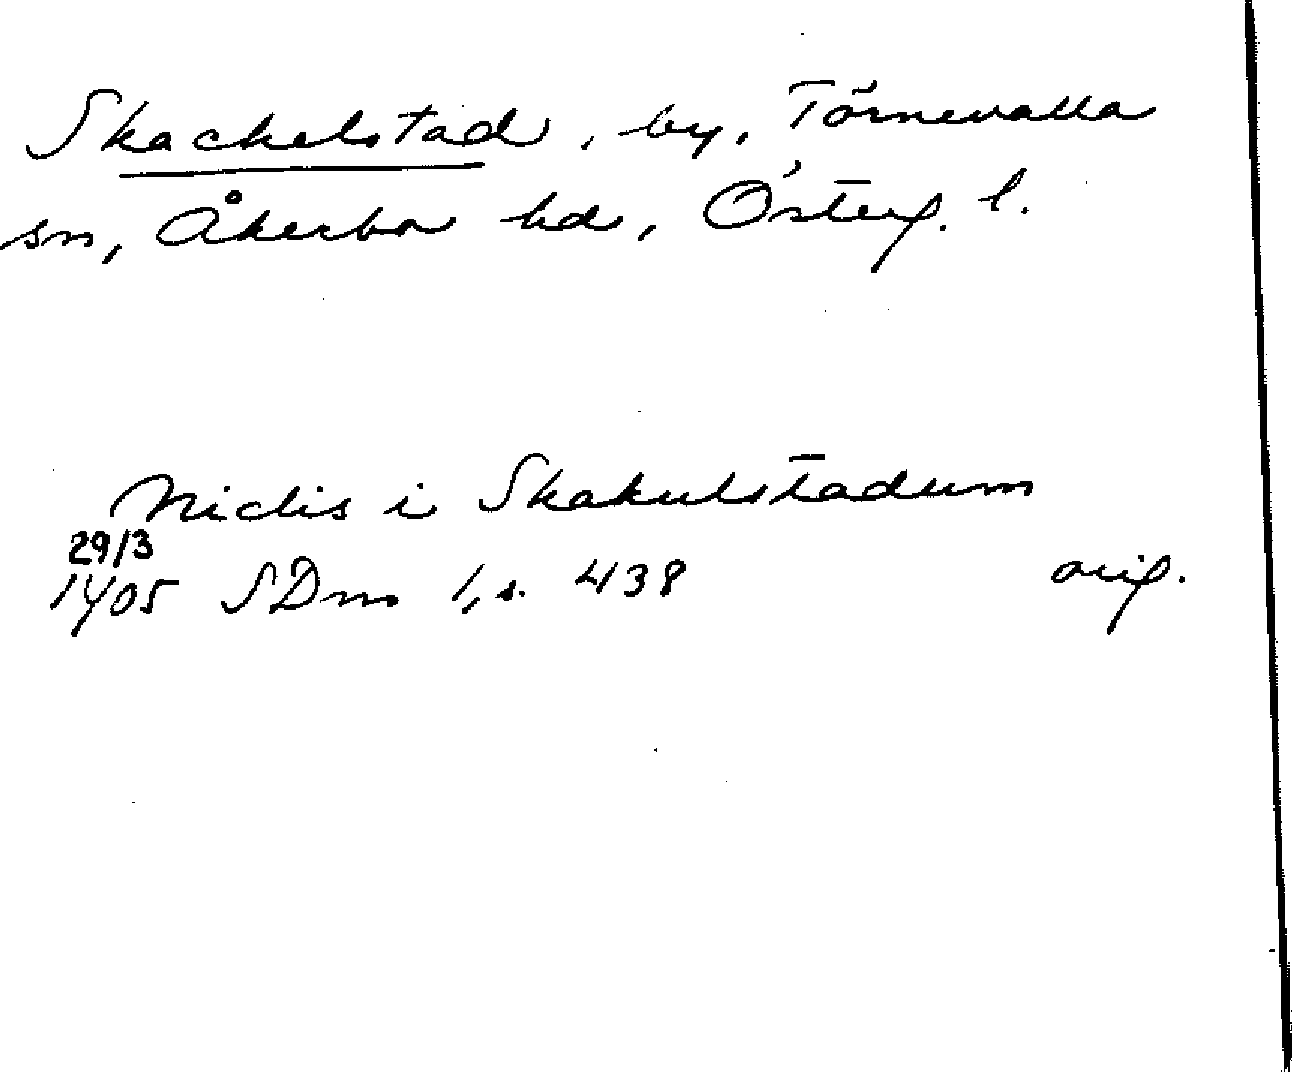 Skackelstad, by, Törnevalla
sn, Åkerbo hd, Österg. l.
Niclis i Skakulstadum
29/3
1405 SDns 1, s. 438 orig.